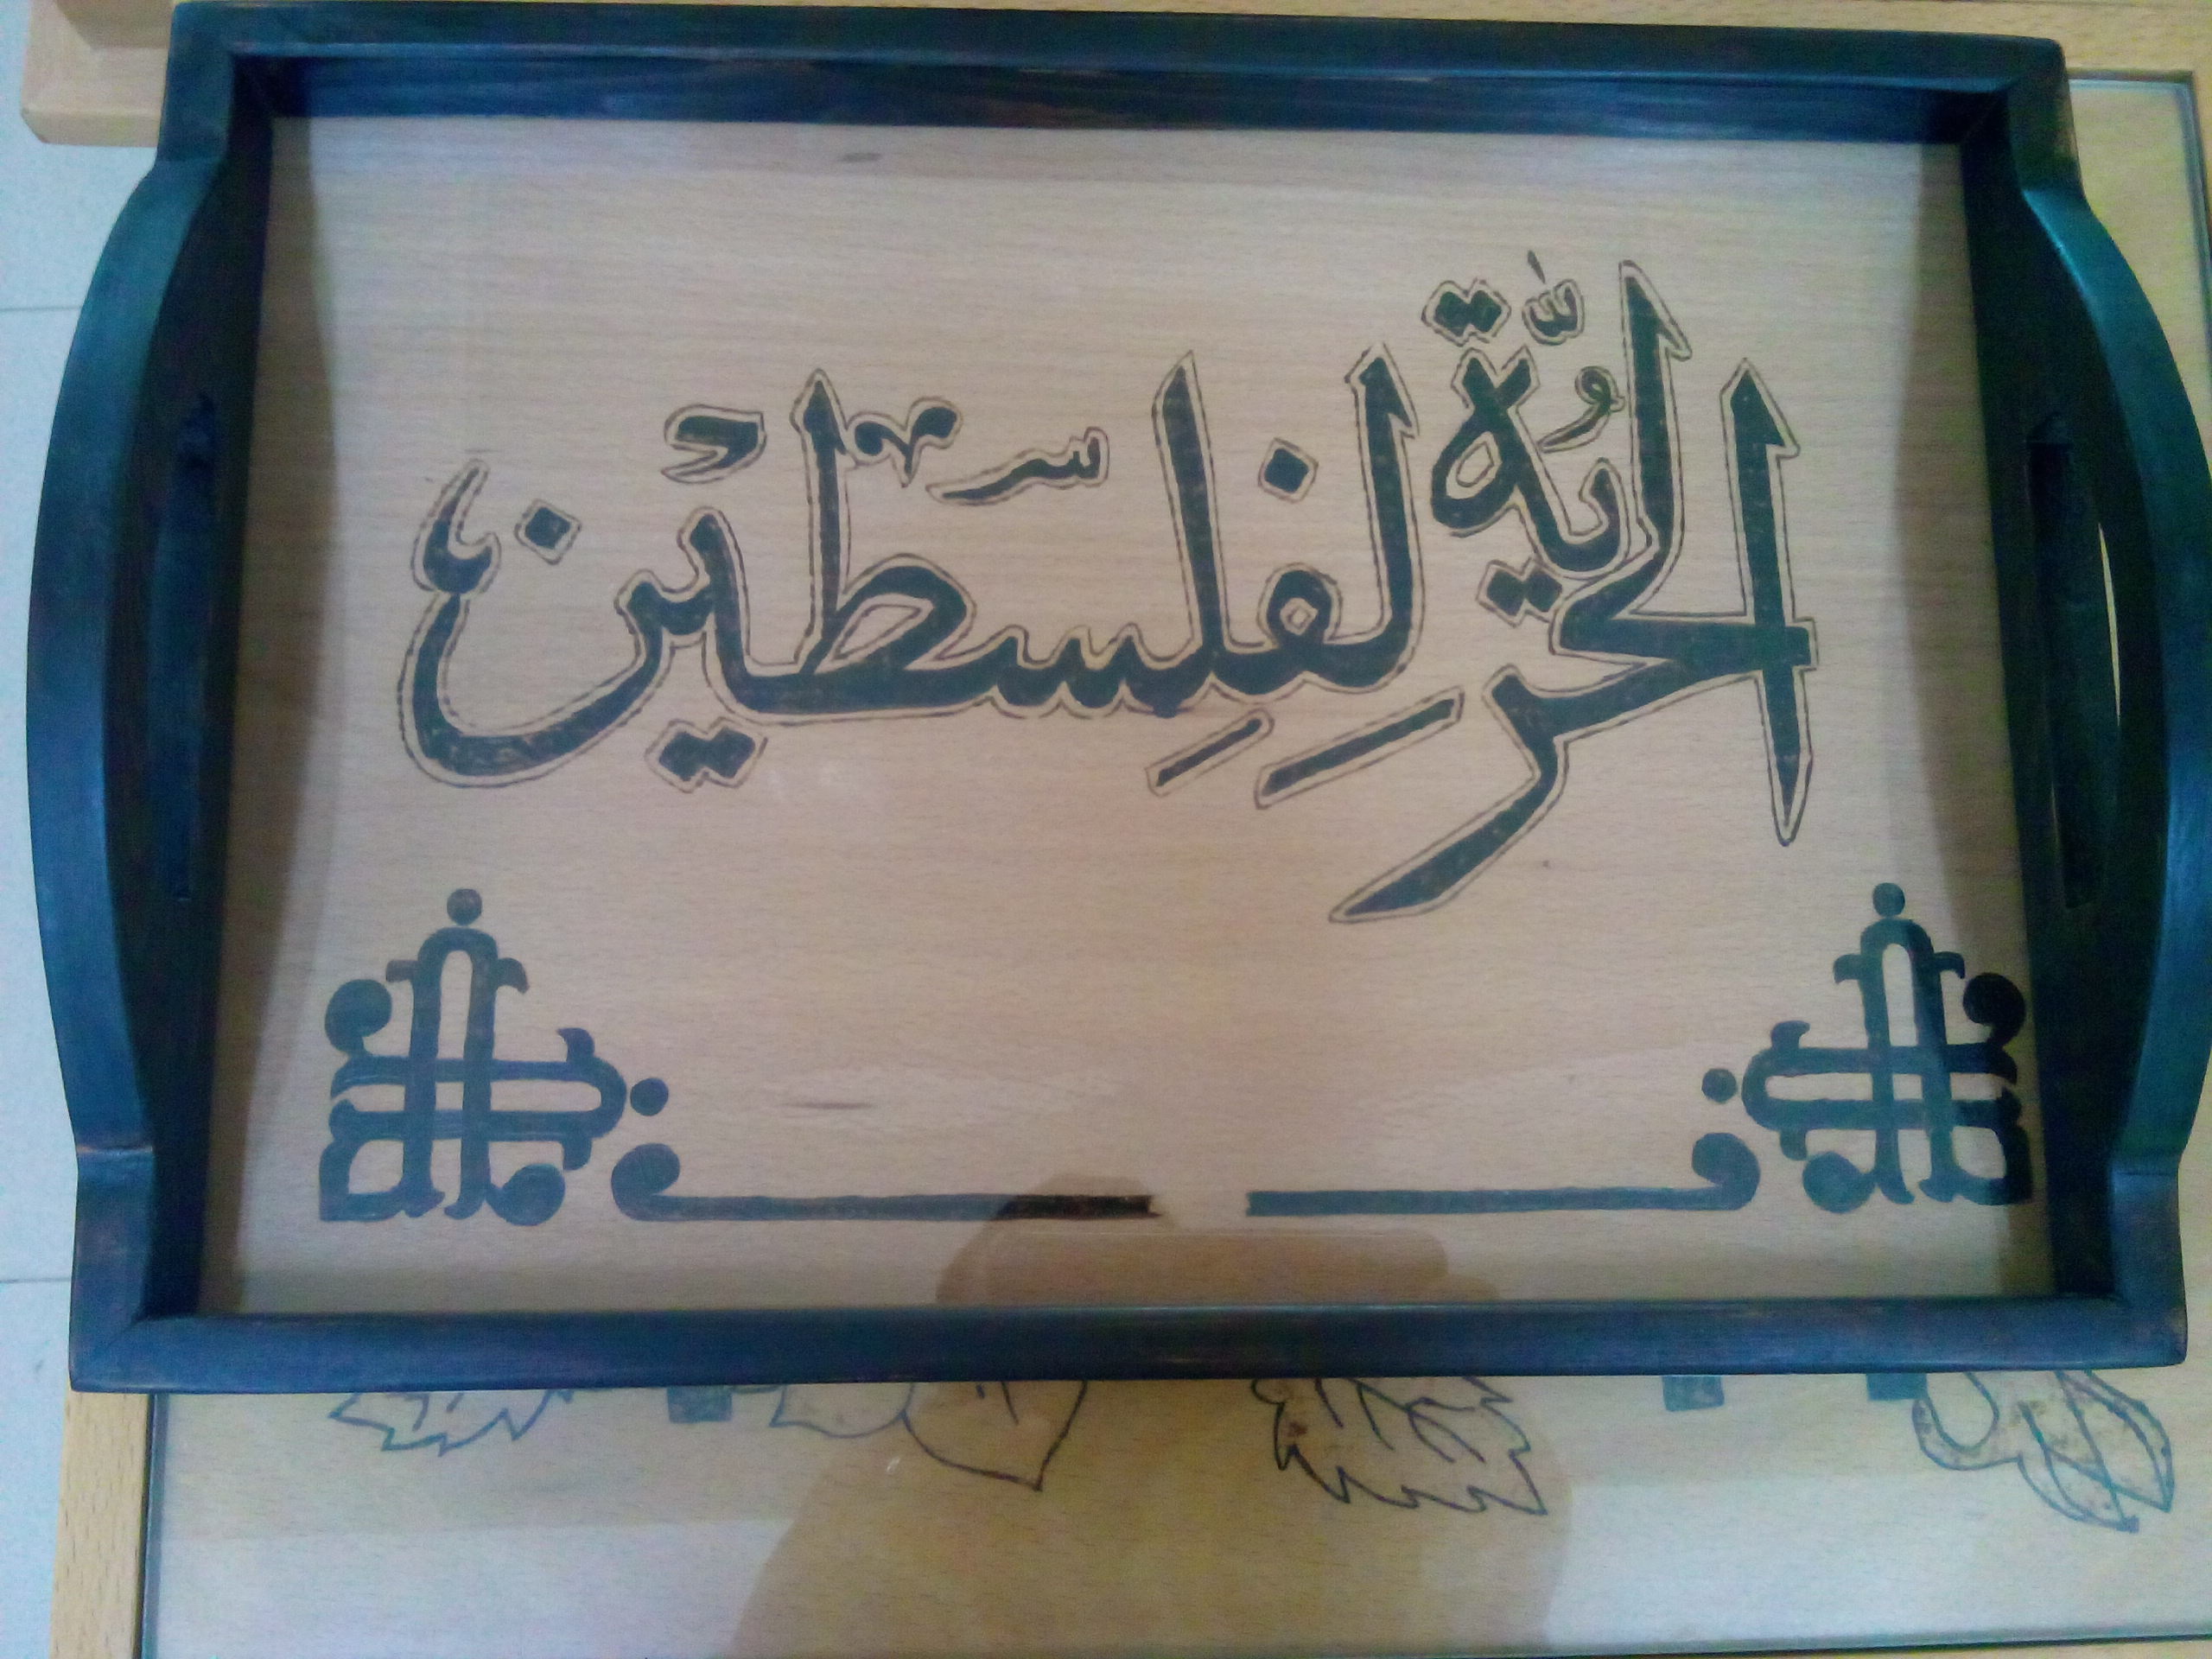 الحُرِّيَّة لِفِلِسطين